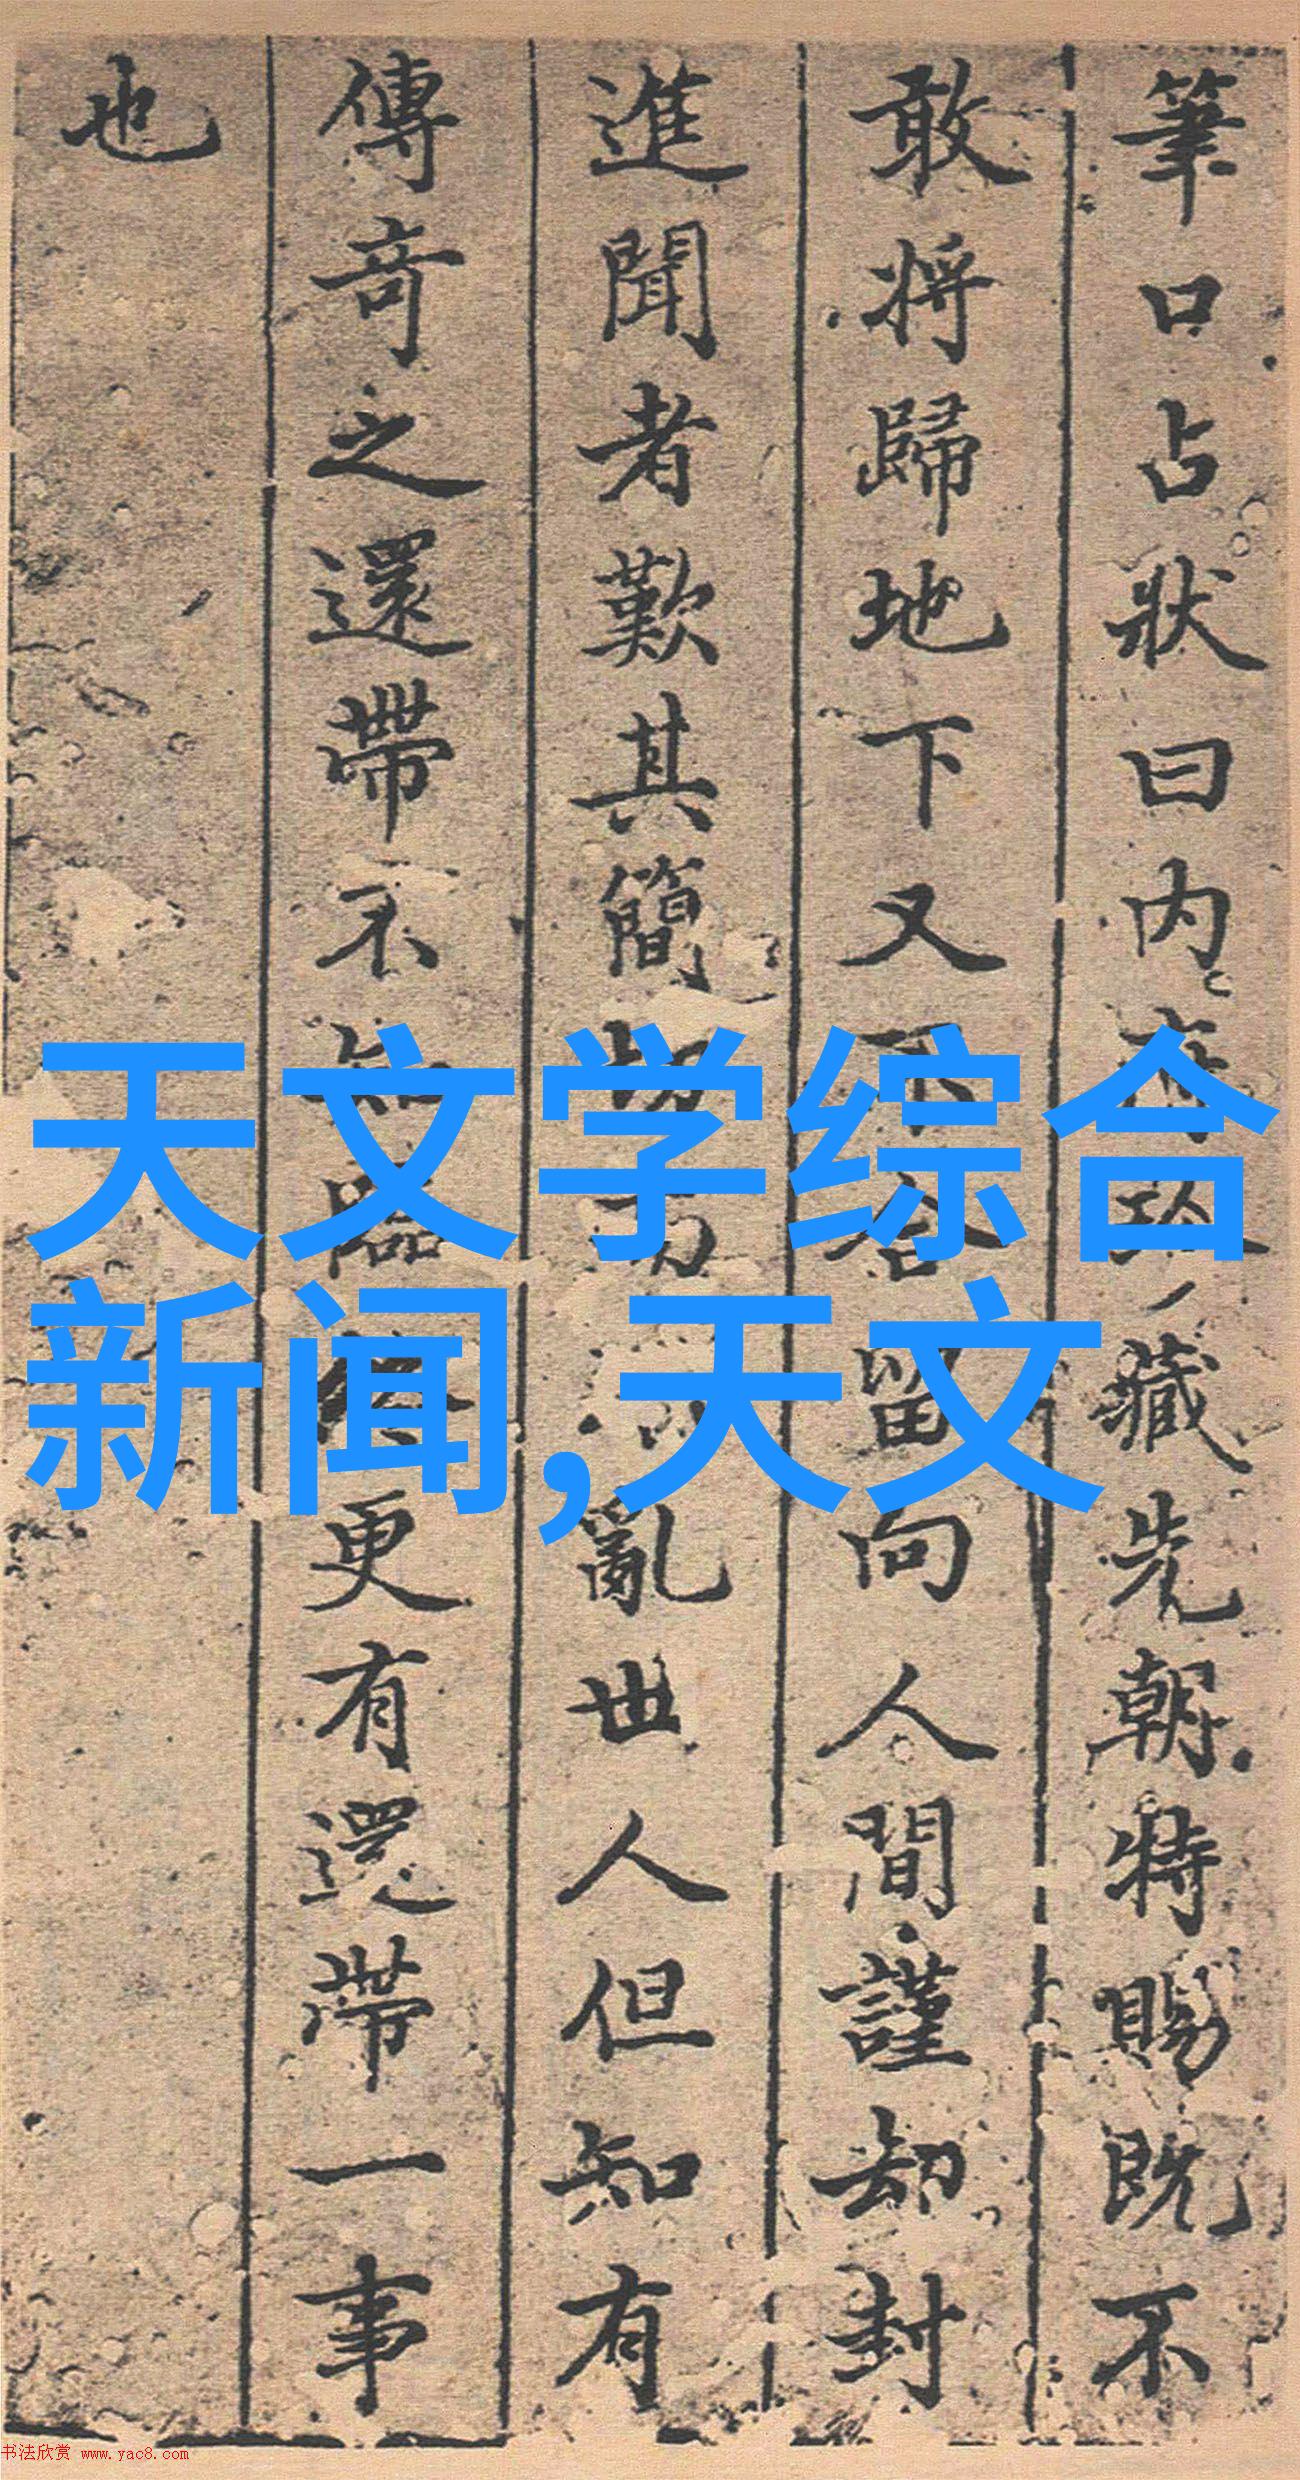 筆口占狀曰内
藏先朝特賜既不
敢將歸地下又
留向人間謹却封
進聞者歎其簡
亂世人但知有
傳奇之還帶不
更有還帶一事
也
天文学综合
新闻,天文
书法欣赏 www.yac8.com